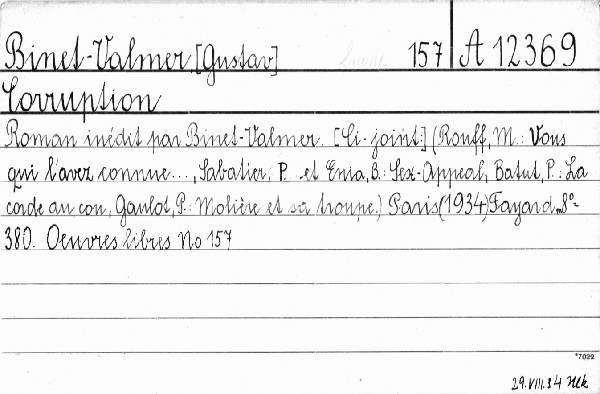 Binet-Valmer [Gustav] 157 A 12369
Corruption
Roman inédit par Binet-Valmer. [Ci-joint:] (Rouff, M.: Vous
qui l'avez connue..., Sabatier, P. et Enia, B.: Sex-Appeal, Batut, P.: La
corde au cou, Gaulot, P.: Molière et sa troupe.) Paris (1934) Fayard. 8°-
380. Oeuvres libres No 157
*7022
29.VIII.34